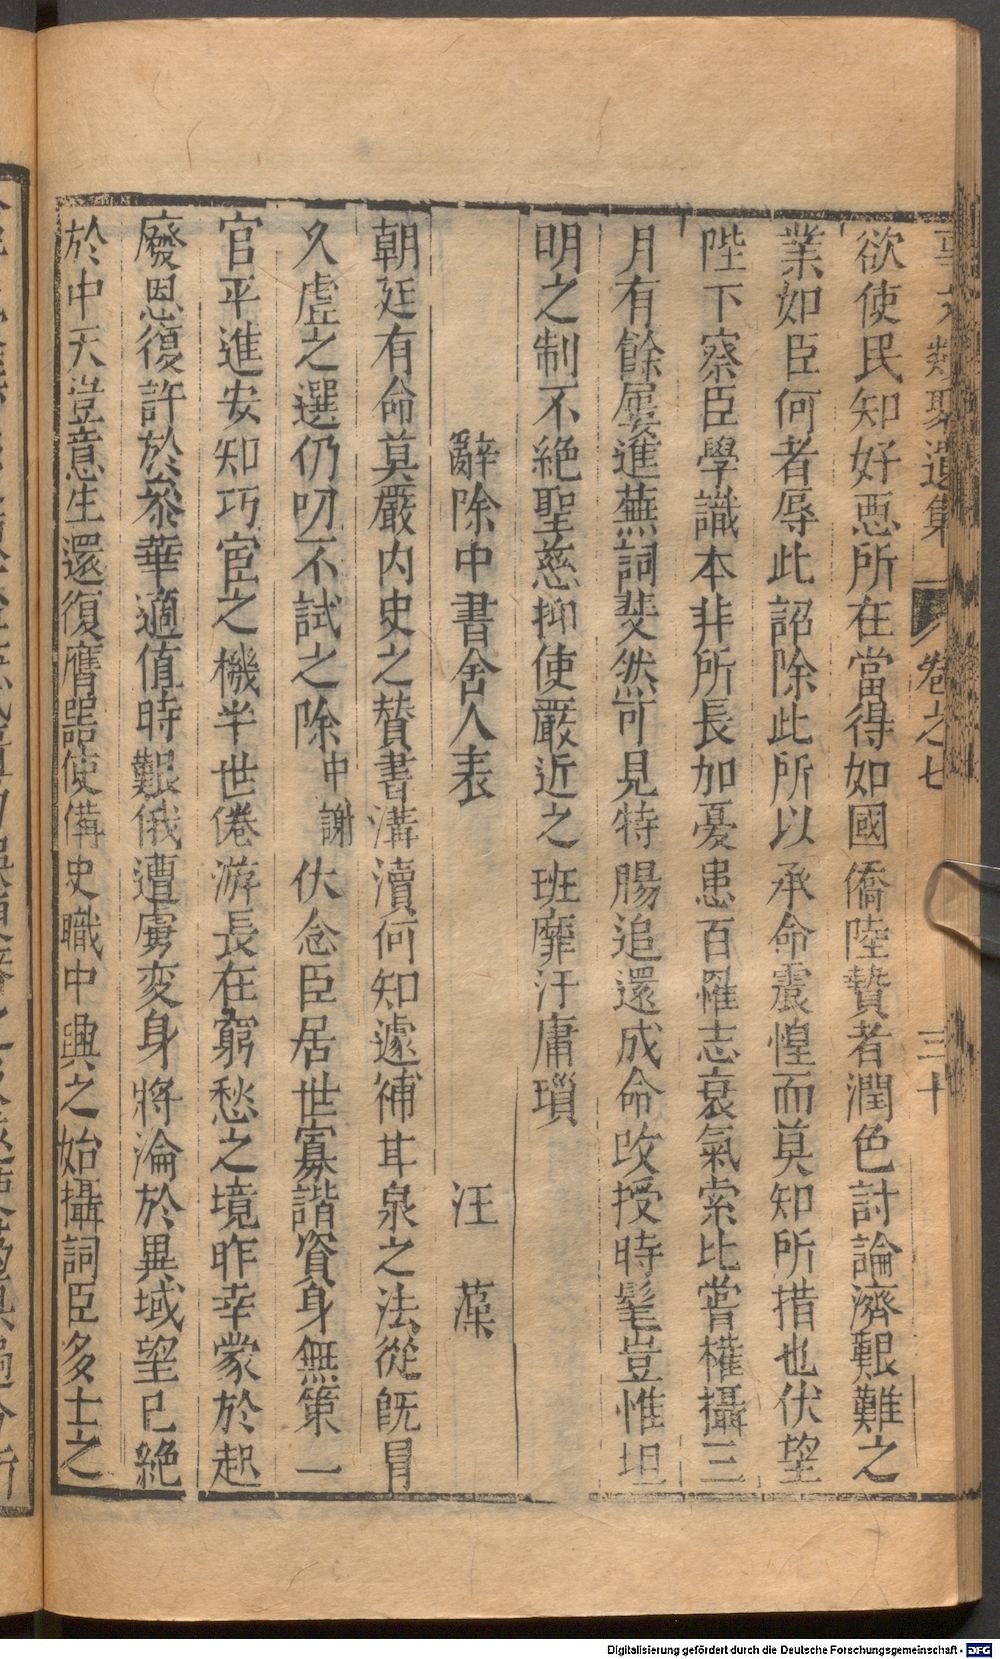 事文類聚遺集 卷之七 三十
欲使民知好惡所在當得如國僑陸贄者潤色討論濟艱難之
業如臣何者辱此詔除此所以承命震惶而莫知所措也伏望
陛下察臣學識本非所長加憂患百罹志衰氣索比嘗權攝三
月有餘屢進蕪詞斐然可見特賜追還成命改授時髦豈惟坦
明之制不絶聖慈抑使嚴近之班靡汙庸瑣
辭除中書舍人表 汪藻
朝廷有命莫嚴内史之賛書溝瀆何知遽補甘泉之法從旣冐
久虛之選仍叨不試之除中謝伏念臣居世寡諧資身無策一
官平進安知巧宦之機半世倦游長在窮愁之境昨幸蒙於起
廢恩復許於叅華適值時艱俄遭虜変身將淪於異域望已絶
於中天豈意生還復膺器使備史職中興之始攝詞臣多士之
Digitalisierung gefördert durch die Deutsche Forschungsgemeinschaft - DFG